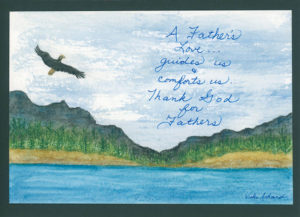 A Father's
Love...
guides us
&
comforts us.
Thank God
for
Fathers